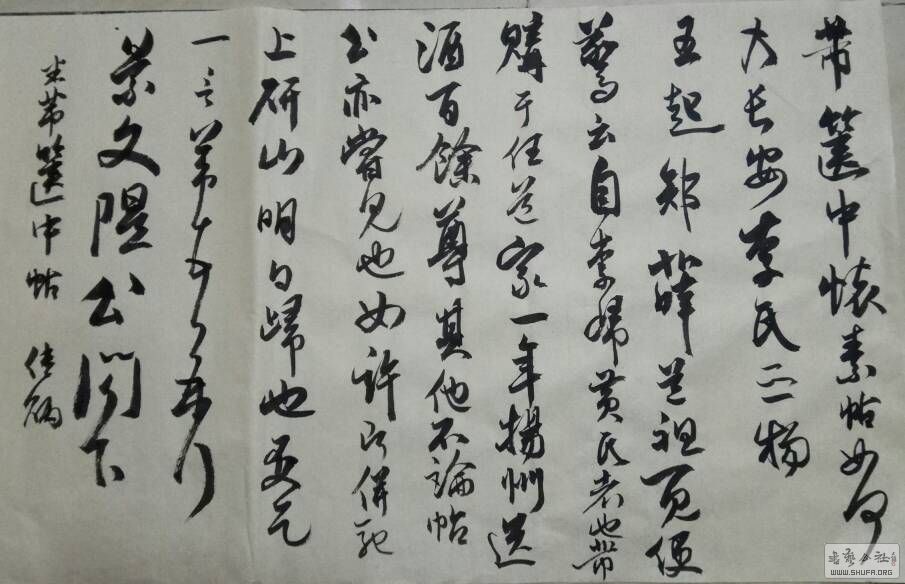 芾篋中懷素帖如何
乃長安李氏之物
王起部薛道祖一見便
驚云自李歸黃氏者也芾
購于任道家一年揚州送
酒百餘尊其他不論帖
公亦嘗見也如許即併馳
上研山明日歸也更乞
一言芾頓首再拜
景文隰公閤下
米芾篋中帖
WWW.SHUFA.ORG